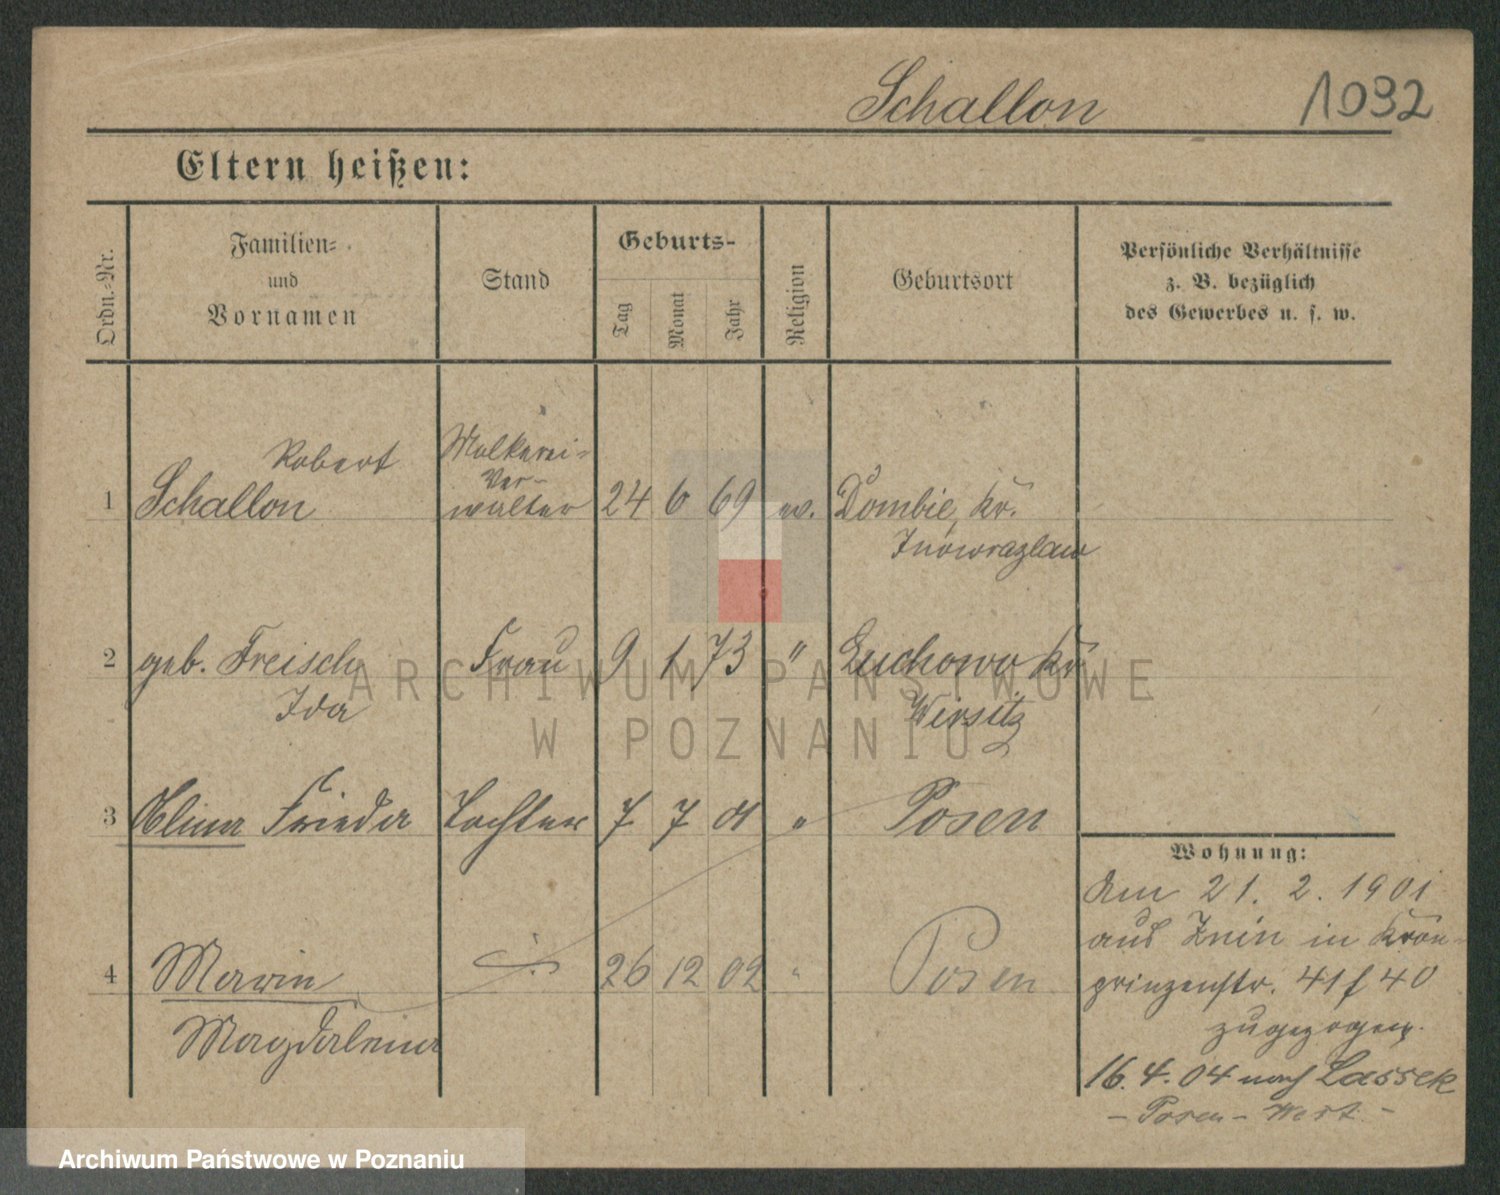 Schallon 1092
Eltern heißen:
Ordn.-Nr.
Familien-
und
Vornamen
Stand
Geburts-
Tag
Monat
Jahr
Religion
Geburtsort
Persönliche Verhältnisse
z. B. bezüglich
des Gewerbes u. s. w.
Robert Molkerei-
Ver-
1 Schallon walter 24 6 69 ev. Dombie, Kr.
Inowrazlaw
2 geb. Freisch Frau 9 1 73 " Luchowo Kr
Ida Wirsitz
3 Frieda Tochter 7 7 01 " Posen
4 26 12 02 " Posen
Magdalena
Wohnung:
Am 21. 2. 1901
aus Znin in Kron-
prinzenstr. 41 40
zugezogen.
16. 4. 04 nach Lassek
- Posen - West. -
ARCHIWUM PAŃSTWOWE
W POZNANIU
Archiwum Państwowe w Poznaniu